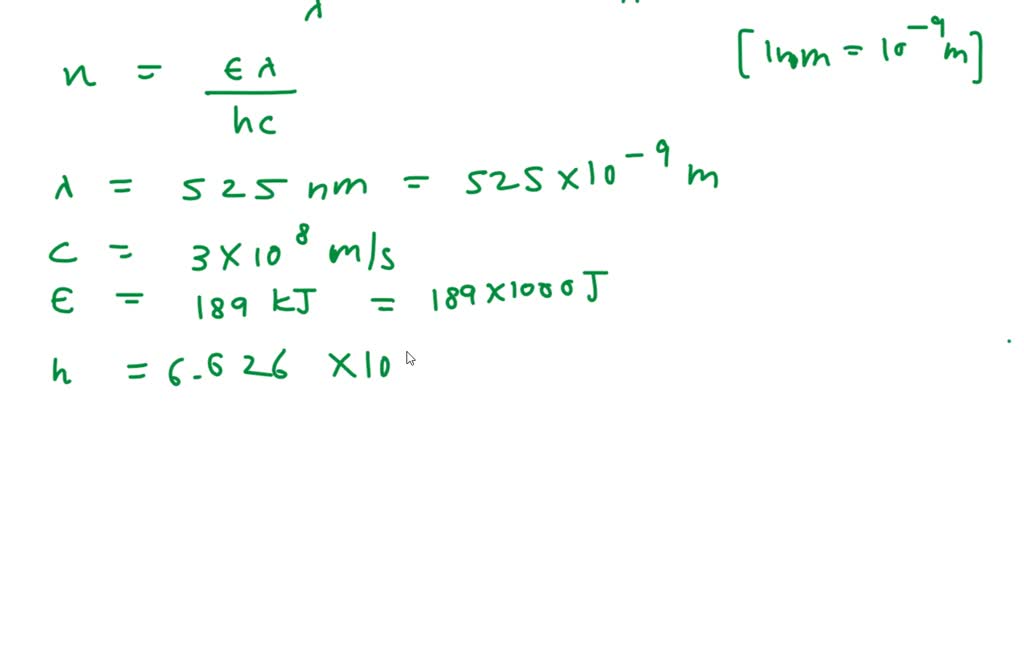 λ
[1nm = 10⁻⁹m]
n = ελ / hc
λ = 525 nm = 525 × 10⁻⁹ m
C = 3 × 10⁸ m/s
ε = 189 kJ = 189 × 1000 J
h = 6.626 × 10